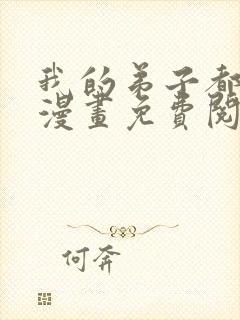 我的弟子都
漫畫免費閱
何奔